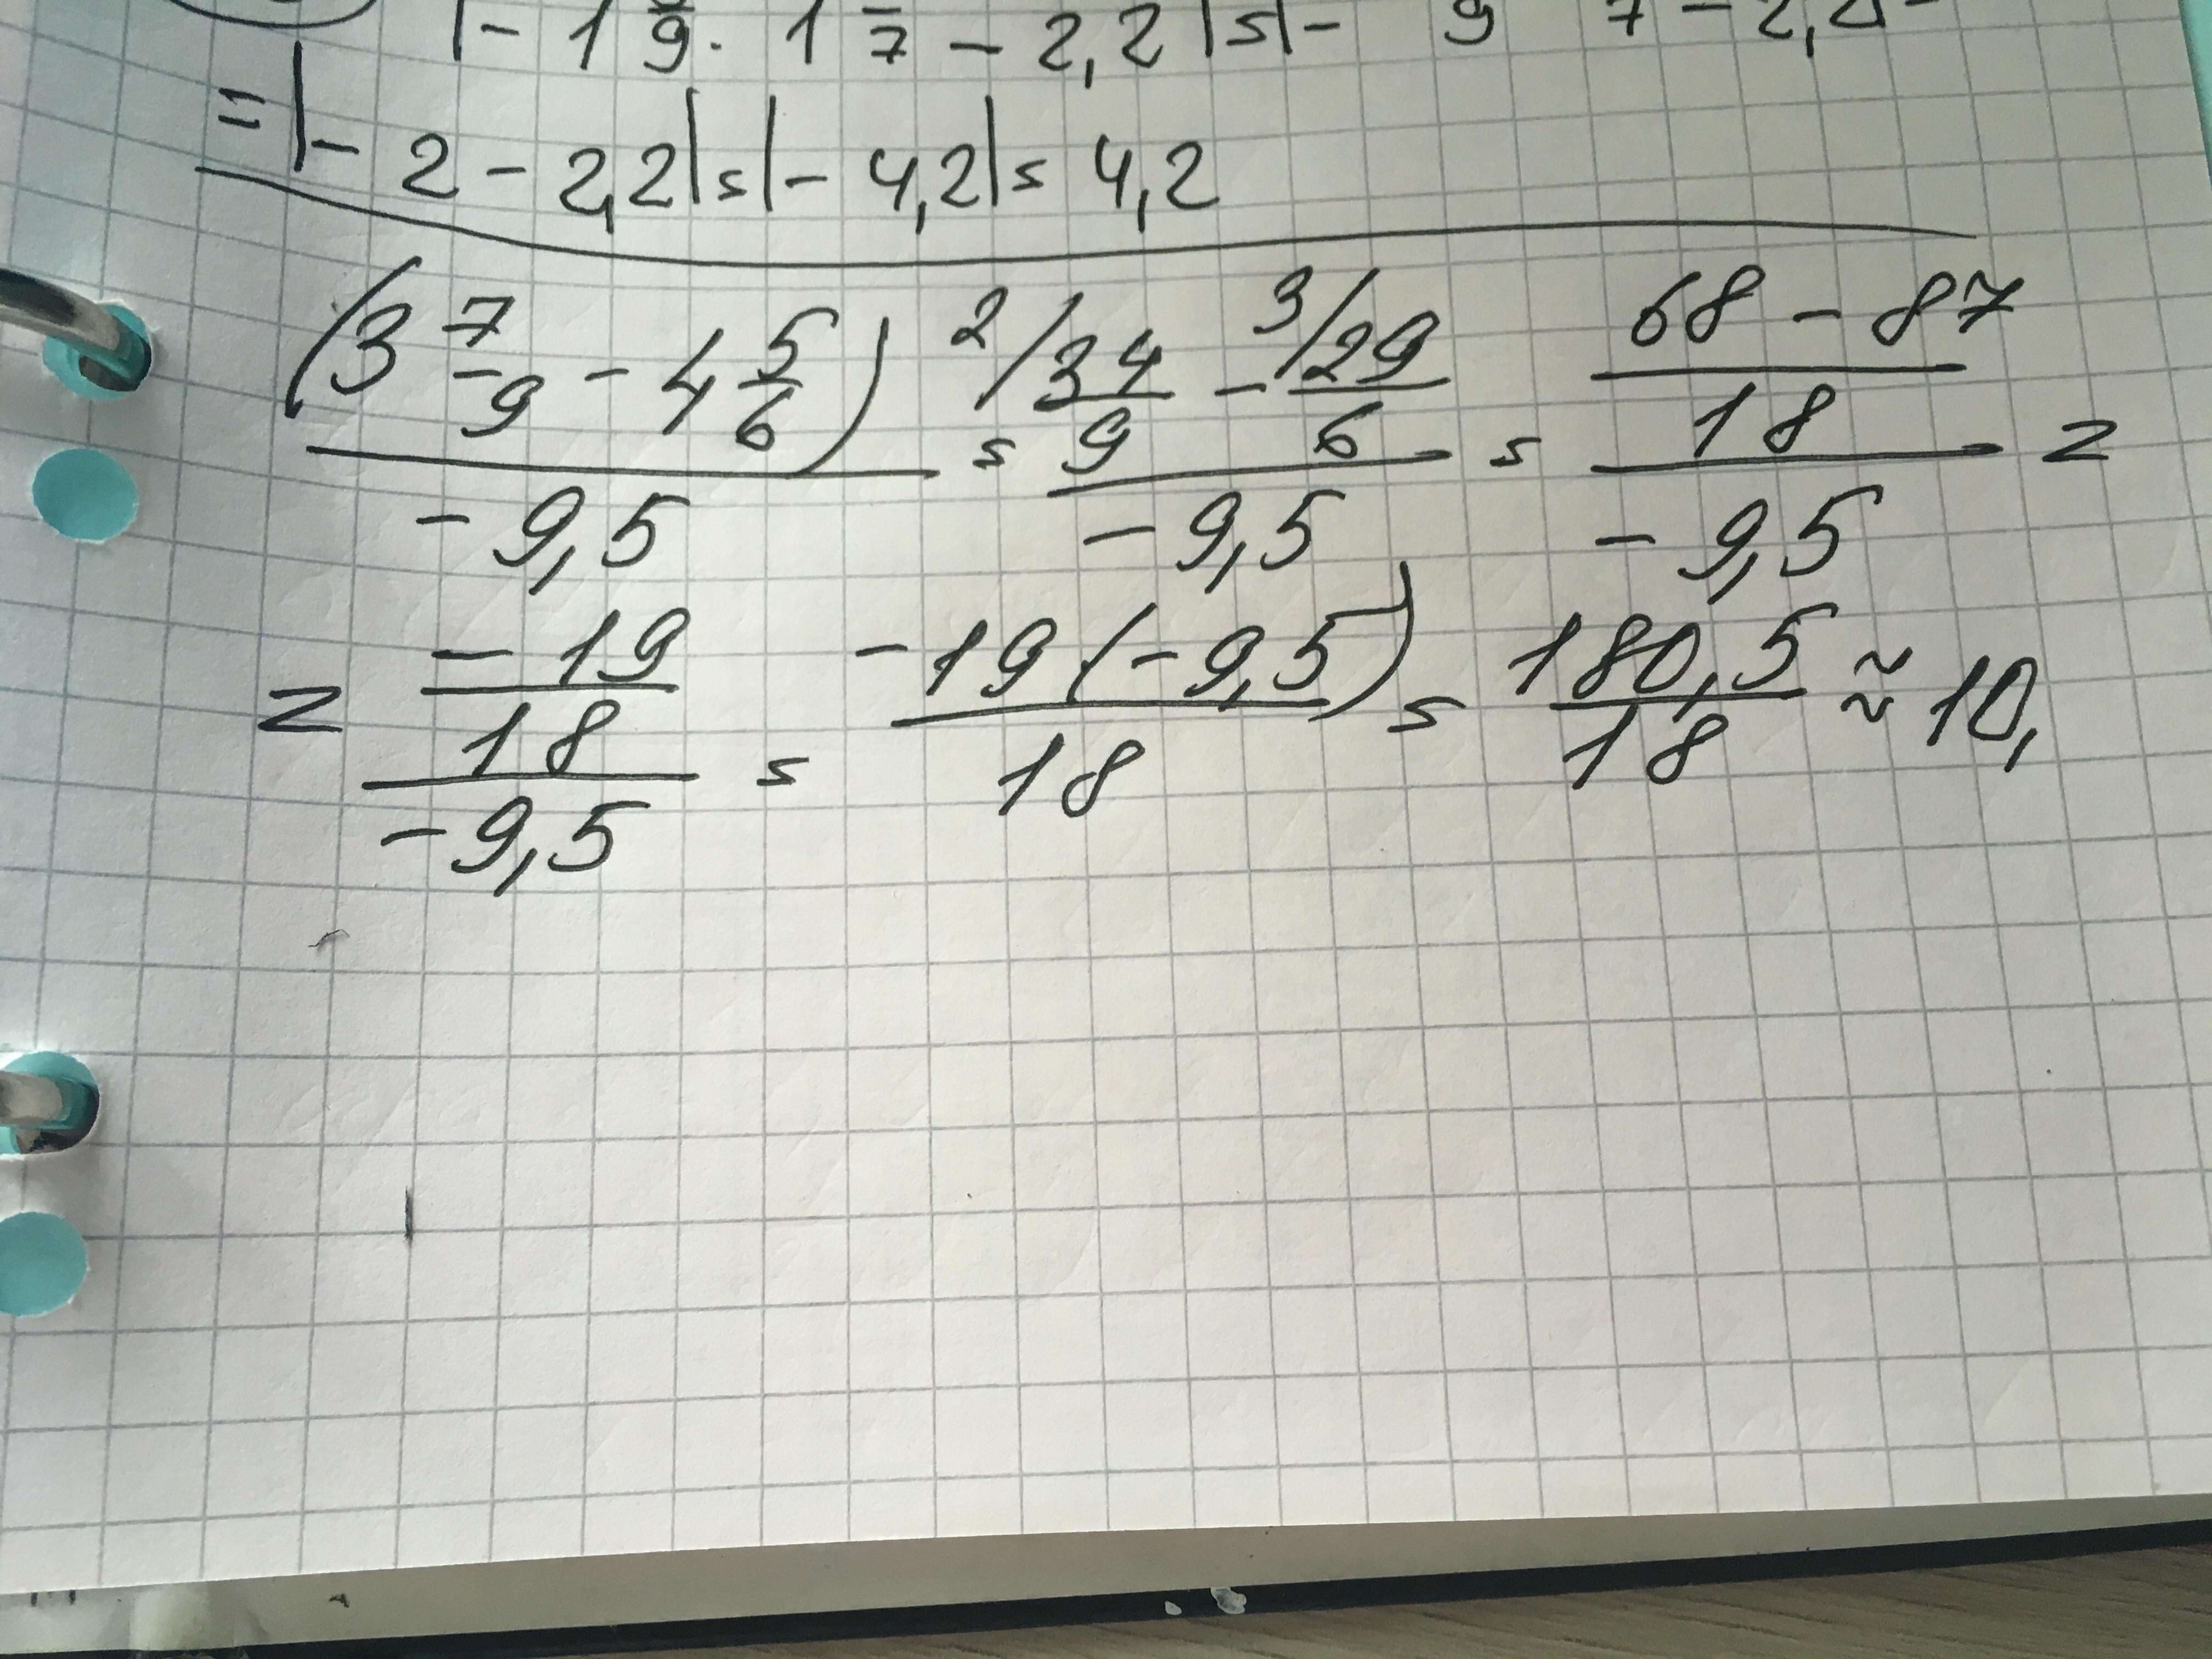 |- 1 9 · 1 7 - 2,2|=|- 9 7 - 2,2
=|- 2 - 2,2|=|- 4,2|= 4,2
(3 7/9 - 4 5/6) / -9,5 = (2/ 34/9 - 3/ 29/6) / -9,5 = ((68 - 87)/18) / -9,5 =
= (-19/18) / -9,5 = -19(-9,5)/18 = 180,5/18 ≈ 10,